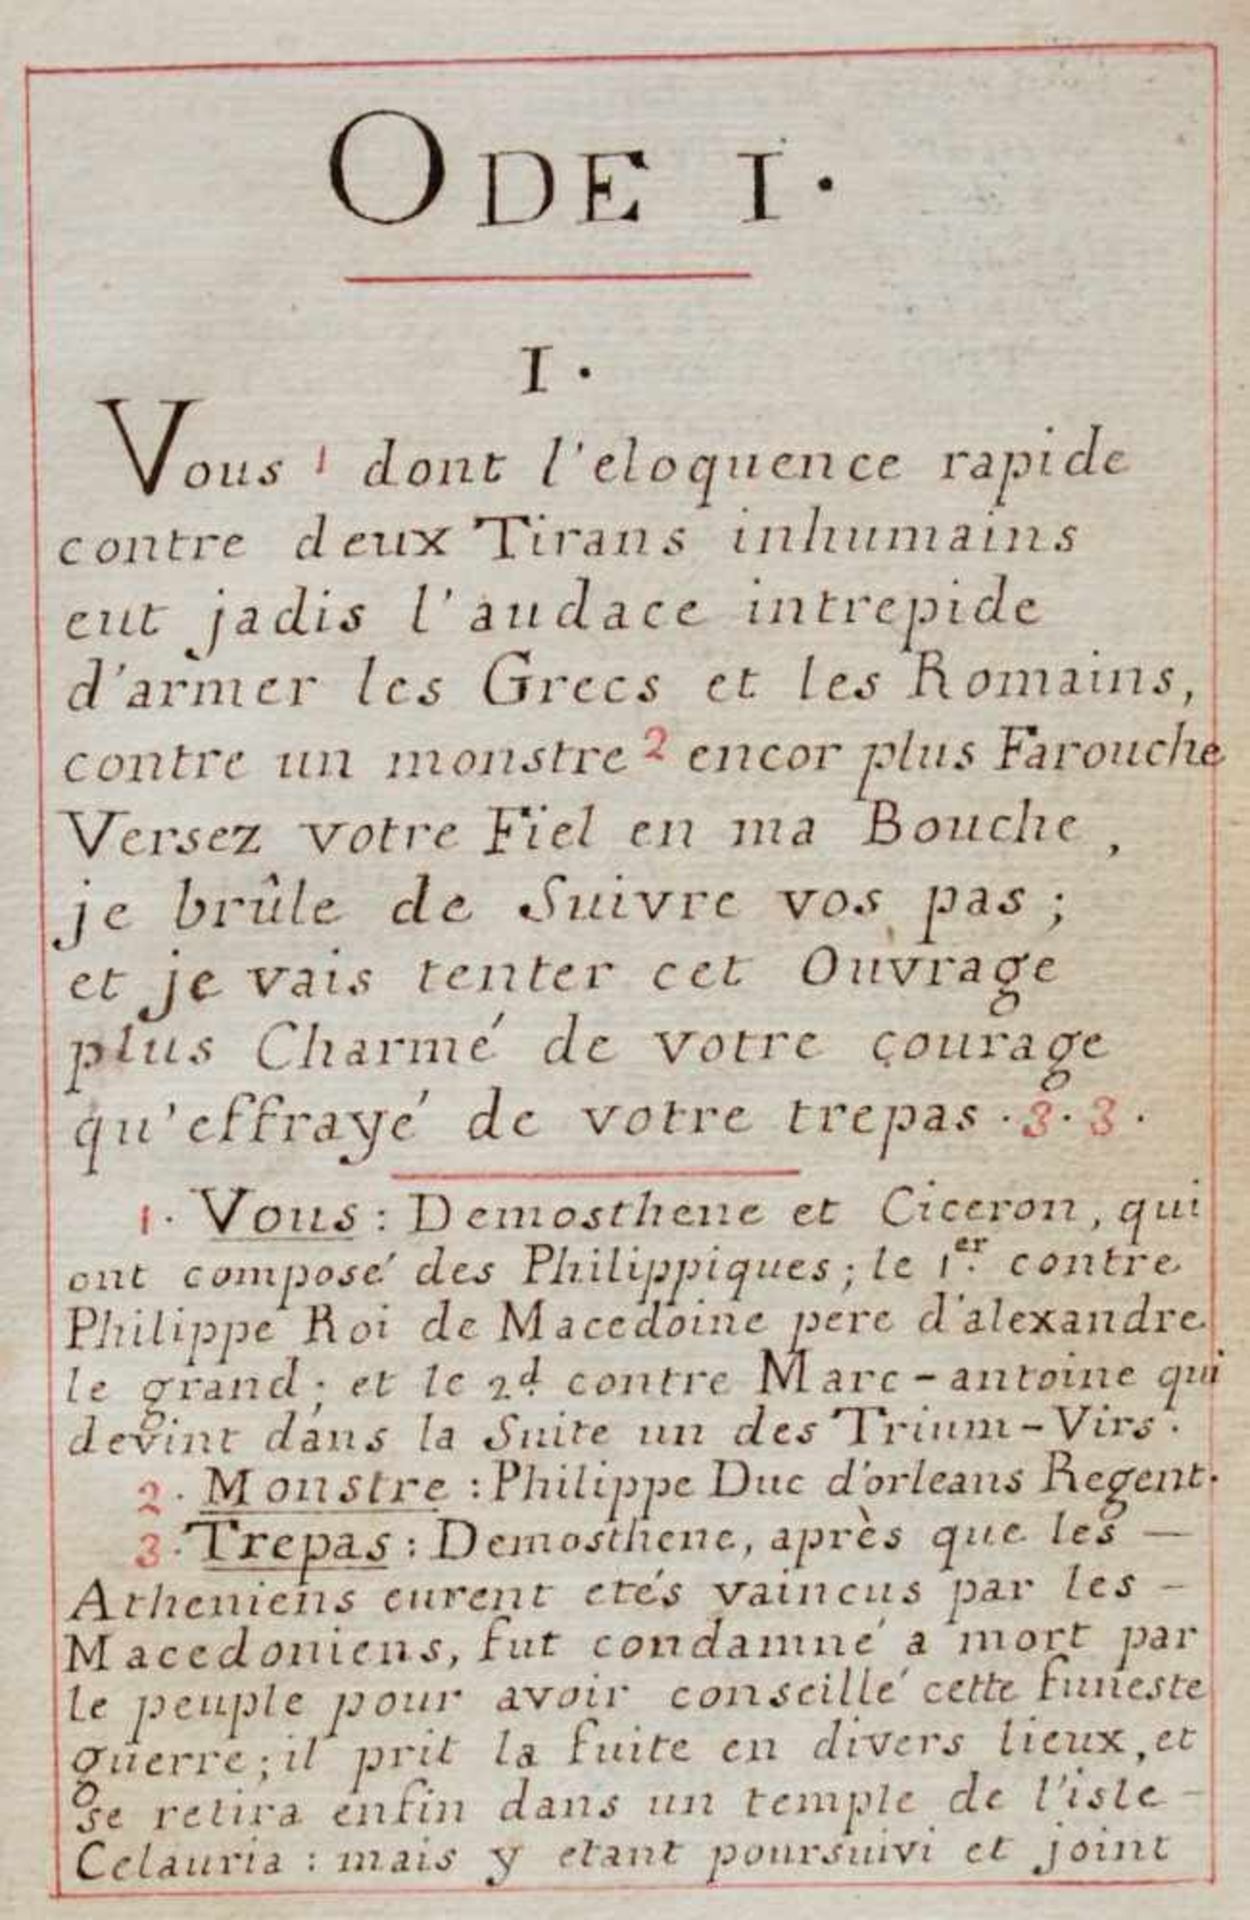 ODE I.
I.
Vous 1 dont l'eloquence rapide
contre deux Tirans inhumains
eut jadis l'audace intrepide
d'armer les Grecs et les Romains,
contre un monstre 2 encor plus Farouche
Versez votre Fiel en ma Bouche,
je brûle de Suivre vos pas;
et je vais tenter cet Ouvrage
plus Charmé de votre çourage
qu'effrayé de votre trepas. 3. 3.
1. Vous: Demosthene et Ciceron, qui
ont composé des Philippiques; le 1er. contre
Philippe Roi de Macedoine pere d'alexandre
le grand; et le 2d contre Marc-antoine qui
devint dans la Suite un des Trium-Virs.
2. Monstre: Philippe Duc d'orleans Regent.
3. Trepas: Demosthene, après que les —
Atheniens eurent etés vaincus par les -
Macedoniens, fut condamné a mort par
le peuple pour avoir conseillé cette funeste
guerre; il prit la fuite en divers lieux, et
se retira enfin dans un temple de l'isle -
Celauria: mais y etant poursuivi et joint